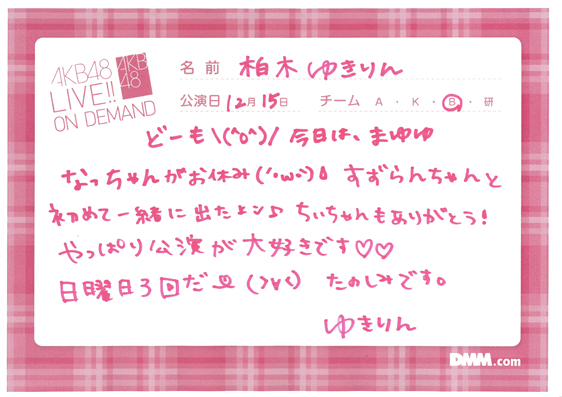 AKB48
LIVE!!
ON DEMAND
AKB
48
名前 柏木ゆきりん
公演日 12月15日 チーム A・K・B・研
どーも\(^o^)/ 今日は、まゆゆ
なっちゃんがお休み(´・ω・`) すずらんちゃんと
初めて一緒に出たよン♪ ちぃちゃんもありがとう!
やっぱり公演が大好きです♡♡
日曜日3回だ (>∀<) たのしみです。
ゆきりん
DMM.com